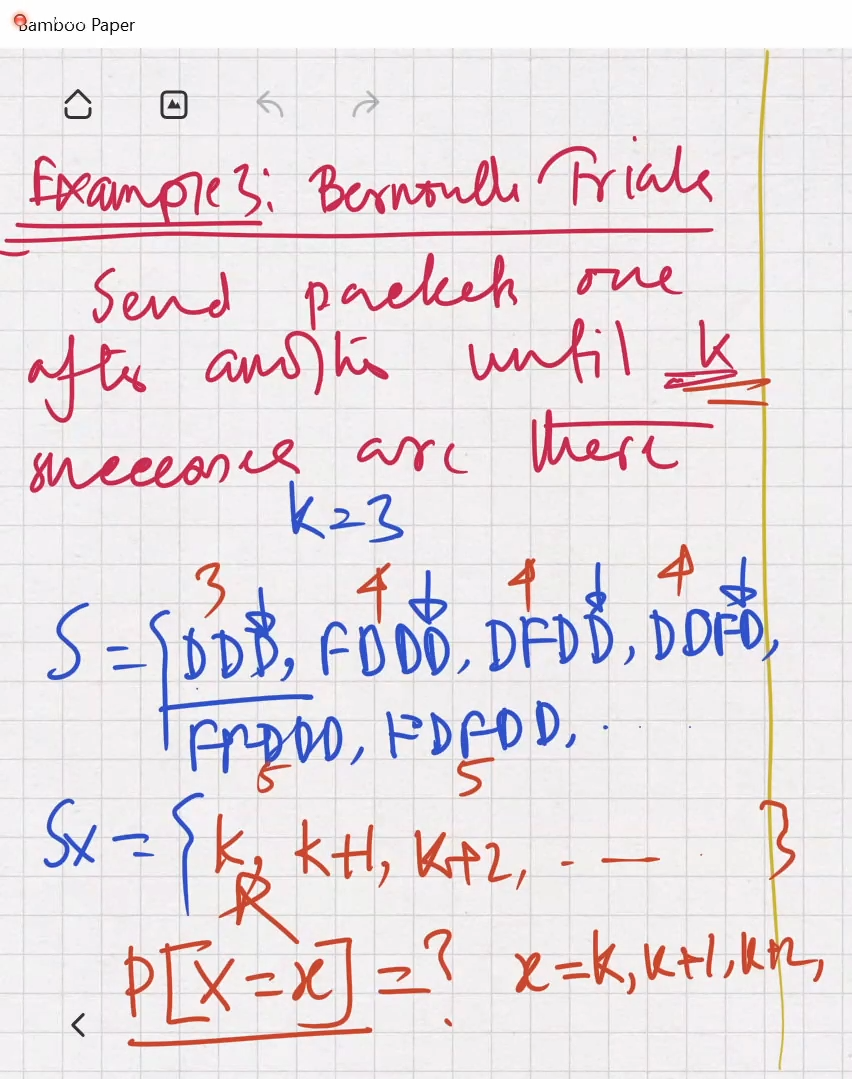 Bamboo Paper
Example 3: Bernoulli Trials
Send packets one
after another until k
successes are there
k=3
3 4 4 4
S = { DDD, FDDD, DFDD, DDFD,
FFDDD, FDFDD, ...
5 5
Sx = { k, k+1, k+2, . — . }
P[X=x]=? x=k, k+1, k+2,